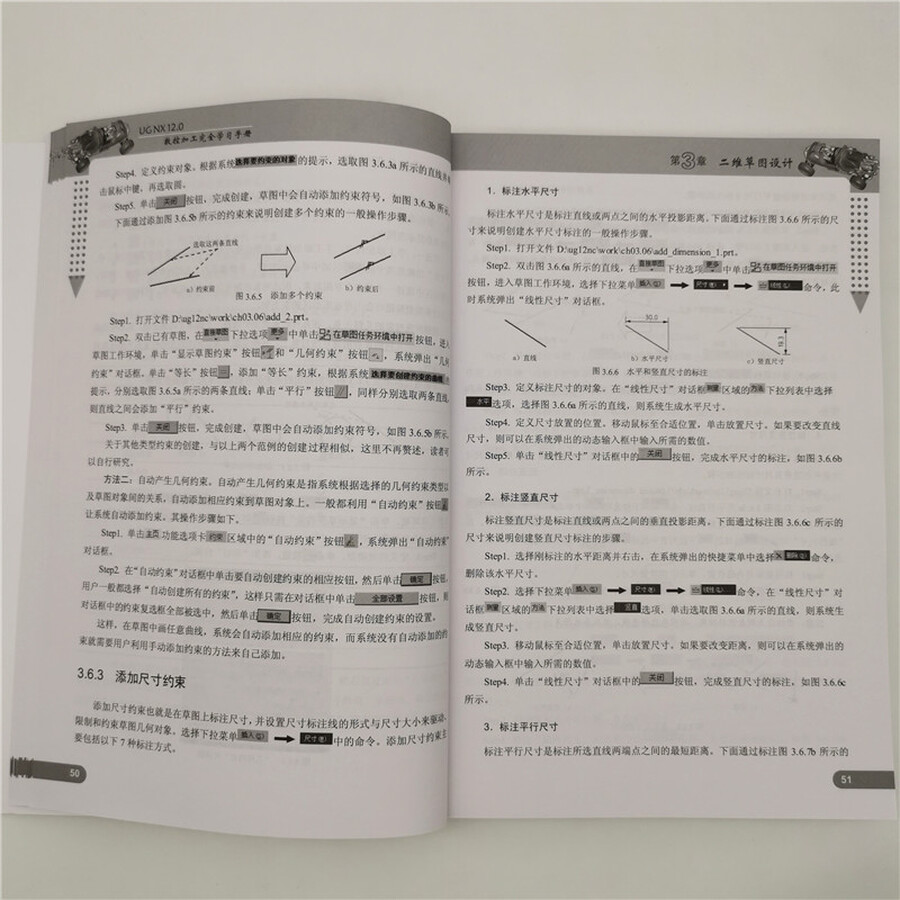 UG NX 12.0
数控加工完全学习手册
Step4. 定义约束对象。根据系统选择要约束的对象的提示，选取图 3.6.3a 所示的直线并单
击鼠标中键，再选取圆。
Step5. 单击 关闭 按钮，完成创建，草图中会自动添加约束符号，如图 3.6.3b 所示。
下面通过添加图 3.6.5b 所示的约束来说明创建多个约束的一般操作步骤。
选取这两条直线
a）约束前
b）约束后
图 3.6.5 添加多个约束
Step1. 打开文件 D:\ug12nc\work\ch03.06\add_2.prt。
Step2. 双击已有草图，在 直接草图 下拉选项 更多 中单击 在草图任务环境中打开 按钮，进入
草图工作环境，单击“显示草图约束”按钮 和“几何约束”按钮 ，系统弹出“几何
约束”对话框。单击“等长”按钮 ，添加“等长”约束，根据系统 选择要创建约束的曲线 的
提示，分别选取图 3.6.5a 所示的两条直线；单击“平行”按钮 ，同样分别选取两条直线，
则直线之间会添加“平行”约束。
Step3. 单击 关闭 按钮，完成创建，草图中会自动添加约束符号，如图 3.6.5b 所示。
关于其他类型约束的创建，与以上两个范例的创建过程相似，这里不再赘述，读者可
以自行研究。
方法二：自动产生几何约束。自动产生几何约束是指系统根据选择的几何约束类型以
及草图对象间的关系，自动添加相应约束到草图对象上。一般都利用“自动约束”按钮
让系统自动添加约束。其操作步骤如下。
Step1. 单击 主页 功能选项卡 约束 区域中的“自动约束”按钮 ，系统弹出“自动约束”
对话框。
Step2. 在“自动约束”对话框中单击要自动创建约束的相应按钮，然后单击 确定 按钮。
用户一般都选择“自动创建所有的约束”，这样只需在对话框中单击 全部设置 按钮，则
对话框中的约束复选框全部被选中，然后单击 确定 按钮，完成自动创建约束的设置。
这样，在草图中画任意曲线，系统会自动添加相应的约束，而系统没有自动添加的约
束就需要用户利用手动添加约束的方法来自己添加。
3.6.3 添加尺寸约束
添加尺寸约束也就是在草图上标注尺寸，并设置尺寸标注线的形式与尺寸大小来驱动、
限制和约束草图几何对象。选择下拉菜单 插入(S) 尺寸(M) 中的命令。添加尺寸约束主
要包括以下 7 种标注方式。
50
第3章 二维草图设计
1．标注水平尺寸
标注水平尺寸是标注直线或两点之间的水平投影距离。下面通过标注图 3.6.6 所示的尺
寸来说明创建水平尺寸标注的一般操作步骤。
Step1. 打开文件 D:\ug12nc\work\ch03.06\add_dimension_1.prt。
Step2. 双击图 3.6.6a 所示的直线，在 直接草图 下拉选项 更多 中单击 在草图任务环境中打开
按钮，进入草图工作环境，选择下拉菜单 插入(S) 尺寸(M) 线性(L) 命令，此
时系统弹出“线性尺寸”对话框。
30.0
19.3
a）直线
b）水平尺寸
c）竖直尺寸
图 3.6.6 水平和竖直尺寸的标注
Step3. 定义标注尺寸的对象。在“线性尺寸”对话框 测量 区域的 方法 下拉列表中选择
水平 选项，选择图 3.6.6a 所示的直线，则系统生成水平尺寸。
Step4. 定义尺寸放置的位置。移动鼠标至合适位置，单击放置尺寸。如果要改变直线
尺寸，则可以在系统弹出的动态输入框中输入所需的数值。
Step5. 单击“线性尺寸”对话框中的 关闭 按钮，完成水平尺寸的标注，如图 3.6.6b
所示。
2．标注竖直尺寸
标注竖直尺寸是标注直线或两点之间的垂直投影距离。下面通过标注图 3.6.6c 所示的
尺寸来说明创建竖直尺寸标注的步骤。
Step1. 选择刚标注的水平距离并右击，在系统弹出的快捷菜单中选择 删除(D) 命令，
删除该水平尺寸。
Step2. 选择下拉菜单 插入(S) 尺寸(M) 线性(L) 命令，在“线性尺寸”对
话框 测量 区域的 方法 下拉列表中选择 竖直 选项，单击选取图 3.6.6a 所示的直线，则系统生
成竖直尺寸。
Step3. 移动鼠标至合适位置，单击放置尺寸。如果要改变距离，则可以在系统弹出的
动态输入框中输入所需的数值。
Step4. 单击“线性尺寸”对话框中的 关闭 按钮，完成竖直尺寸的标注，如图 3.6.6c
所示。
3．标注平行尺寸
标注平行尺寸是标注所选直线两端点之间的最短距离。下面通过标注图 3.6.7b 所示的
51